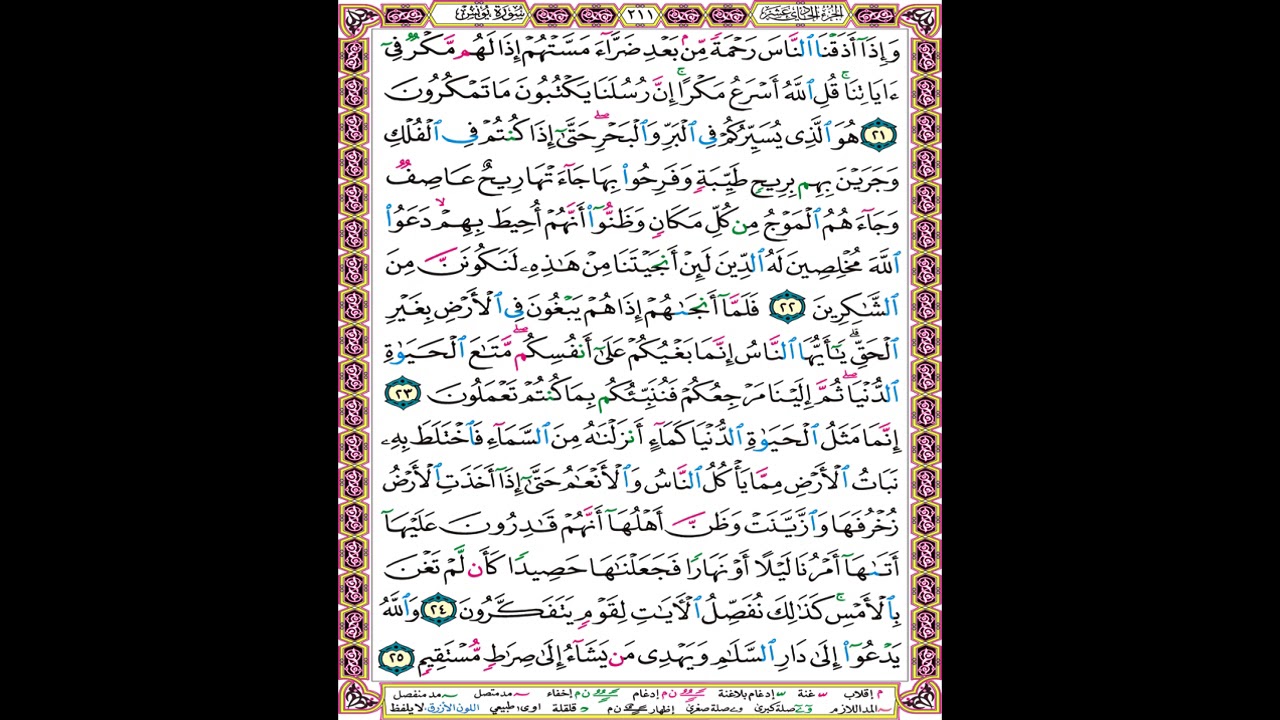 الجزء الحادي عشر ٢١١ سورة يونس
وَإِذَآ أَذَقْنَا ٱلنَّاسَ رَحْمَةً مِّنۢ بَعْدِ ضَرَّآءَ مَسَّتْهُمْ إِذَا لَهُم مَّكْرٌ فِىٓ
ءَايَاتِنَا ۚ قُلِ ٱللَّهُ أَسْرَعُ مَكْرًا ۚ إِنَّ رُسُلَنَا يَكْتُبُونَ مَا تَمْكُرُونَ
٢١ هُوَ ٱلَّذِى يُسَيِّرُكُمْ فِى ٱلْبَرِّ وَٱلْبَحْرِ ۖ حَتَّىٰٓ إِذَا كُنتُمْ فِى ٱلْفُلْكِ
وَجَرَيْنَ بِهِم بِرِيحٍ طَيِّبَةٍ وَفَرِحُوا۟ بِهَا جَآءَتْهَا رِيحٌ عَاصِفٌ
وَجَآءَهُمُ ٱلْمَوْجُ مِن كُلِّ مَكَانٍ وَظَنُّوٓا۟ أَنَّهُمْ أُحِيطَ بِهِمْ ۙ دَعَوُا۟
ٱللَّهَ مُخْلِصِينَ لَهُ ٱلدِّينَ لَئِنْ أَنجَيْتَنَا مِنْ هَـٰذِهِۦ لَنَكُونَنَّ مِنَ
ٱلشَّـٰكِرِينَ ٢٢ فَلَمَّآ أَنجَىٰهُمْ إِذَا هُمْ يَبْغُونَ فِى ٱلْأَرْضِ بِغَيْرِ
ٱلْحَقِّ ۗ يَـٰٓأَيُّهَا ٱلنَّاسُ إِنَّمَا بَغْيُكُمْ عَلَىٰٓ أَنفُسِكُم ۖ مَّتَـٰعَ ٱلْحَيَوٰةِ
ٱلدُّنْيَا ۖ ثُمَّ إِلَيْنَا مَرْجِعُكُمْ فَنُنَبِّئُكُم بِمَا كُنتُمْ تَعْمَلُونَ ٢٣
إِنَّمَا مَثَلُ ٱلْحَيَوٰةِ ٱلدُّنْيَا كَمَآءٍ أَنزَلْنَـٰهُ مِنَ ٱلسَّمَآءِ فَٱخْتَلَطَ بِهِۦ
نَبَاتُ ٱلْأَرْضِ مِمَّا يَأْكُلُ ٱلنَّاسُ وَٱلْأَنْعَـٰمُ حَتَّىٰٓ إِذَآ أَخَذَتِ ٱلْأَرْضُ
زُخْرُفَهَا وَٱزَّيَّنَتْ وَظَنَّ أَهْلُهَآ أَنَّهُمْ قَـٰدِرُونَ عَلَيْهَآ
أَتَىٰهَآ أَمْرُنَا لَيْلًا أَوْ نَهَارًا فَجَعَلْنَـٰهَا حَصِيدًا كَأَن لَّمْ تَغْنَ
بِٱلْأَمْسِ ۚ كَذَٰلِكَ نُفَصِّلُ ٱلْـَٔايَـٰتِ لِقَوْمٍ يَتَفَكَّرُونَ ٢٤ وَٱللَّهُ
يَدْعُوٓا۟ إِلَىٰ دَارِ ٱلسَّلَـٰمِ وَيَهْدِى مَن يَشَآءُ إِلَىٰ صِرَٰطٍ مُّسْتَقِيمٍ ٢٥
م إقلاب غنة إدغام بلاغنة ن م إدغام ن م إخفاء مد متصل مد منفصل
المد اللازم صلة كبرى صلة صغرى إظهار ن م قلقلة اوى طبيعي اللون الأزرق لا يلفظ